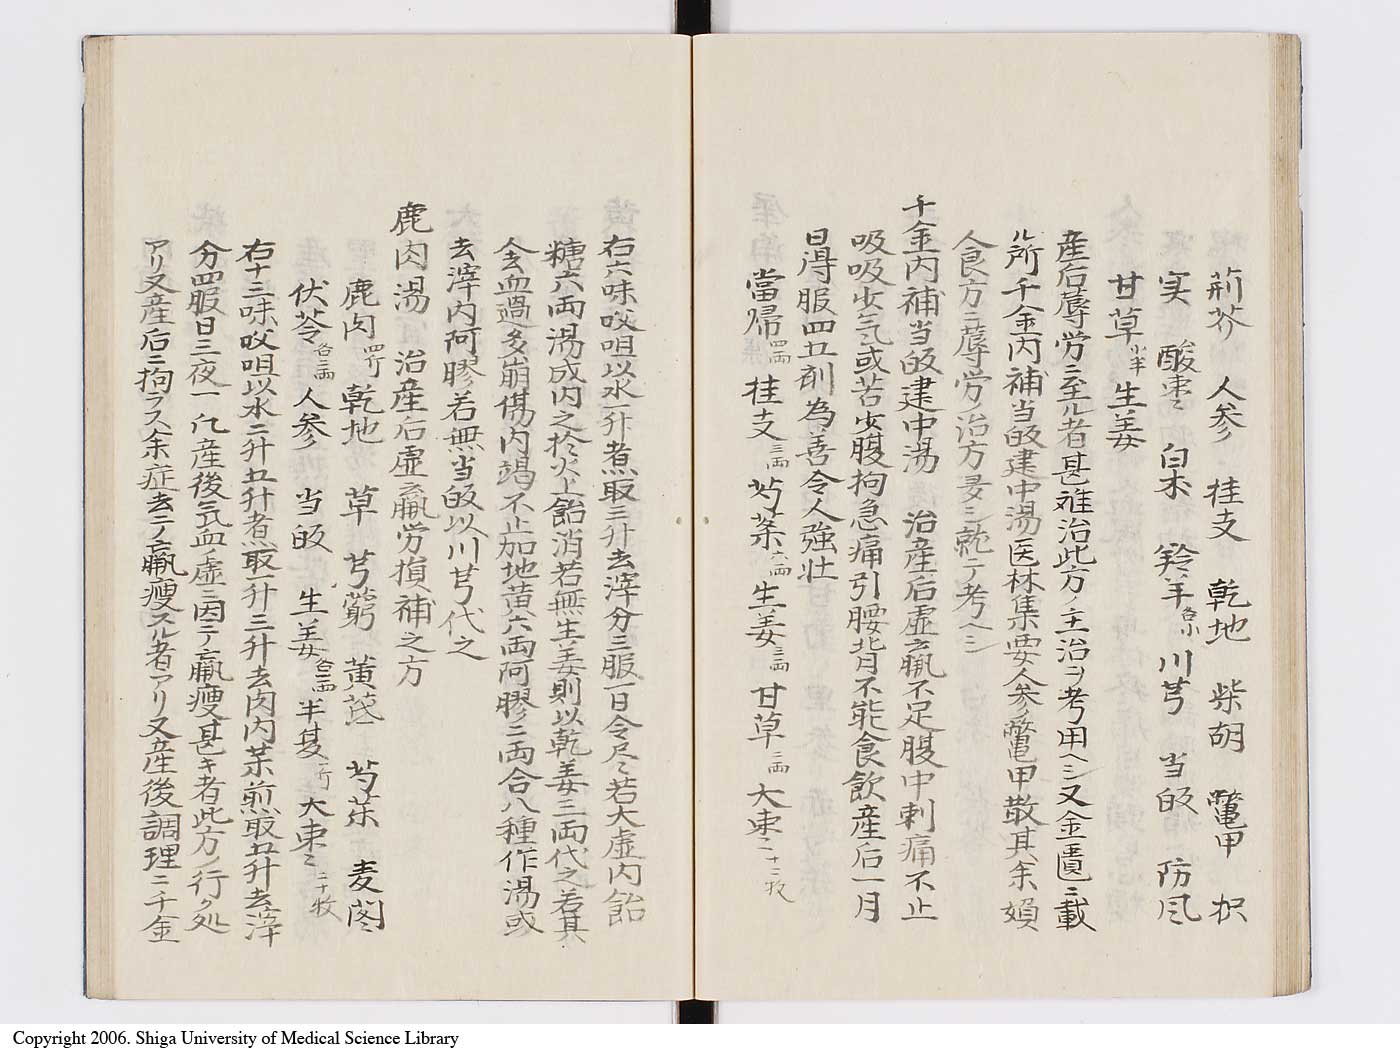 荊芥 人参 桂支 乾地 柴胡 鼈甲 枳
実 酸棗ミ 白朮 羚羊各小 川芎 当皈 防風
甘草小半 生姜
産后蓐労ニ至ル者甚難治此方ノ主治ヲ考用ヘシ又金匱ニ載
ル所千金内補当皈建中湯医林集要人参鼈甲散其余婦
人食方ニ蓐労治方夛シ就テ考ヘシ
千金内補当皈建中湯 治産后虚羸不足腹中刺痛不止
吸吸少气或苦少腹拘急痛引腰背不能食飲産后一月
日得服四五剤為善令人強壮
當帰四両 桂支三両 芍薬六両 生姜三両 甘草二両 大棗ミ十二枚
右六味㕮咀以水一升煮取三升去滓分三服一日令尽若大虚内飴
糖六両湯成内之於火上飴消若無生姜則以乾姜三両代之若其
人去血過多崩傷内竭不止加地黄六両阿膠二両合八種作湯或
去滓内阿膠若無当皈以川芎代之
鹿肉湯 治産后虚羸労損補之方
鹿肉四斤 乾地 草 芎藭 黄芪 芍薬 麦閣
伏苓各三両 人参 当皈 生姜各二両 半夏一斤 大棗ミ二十枚
右十三味㕮咀以水二升五升煮取一升三升去肉内薬煎取五升去滓
分四服日三夜一 凡産後気血ノ虚ニ因テ羸痩甚キ者此方ノ行ク処
アリ又産后ニ拘ラス余症去テ羸痩スル者アリ又産後調理ニ千金
Copyright 2006. Shiga University of Medical Science Library